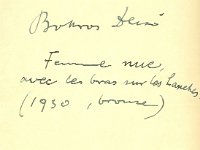 Bokros Dezső
Femme nue,
avec les bras sur les hanches.
(1930, bronse)